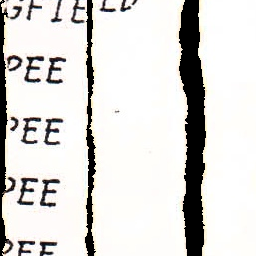 GFIELD
PEE
PEE
PEE
PEE